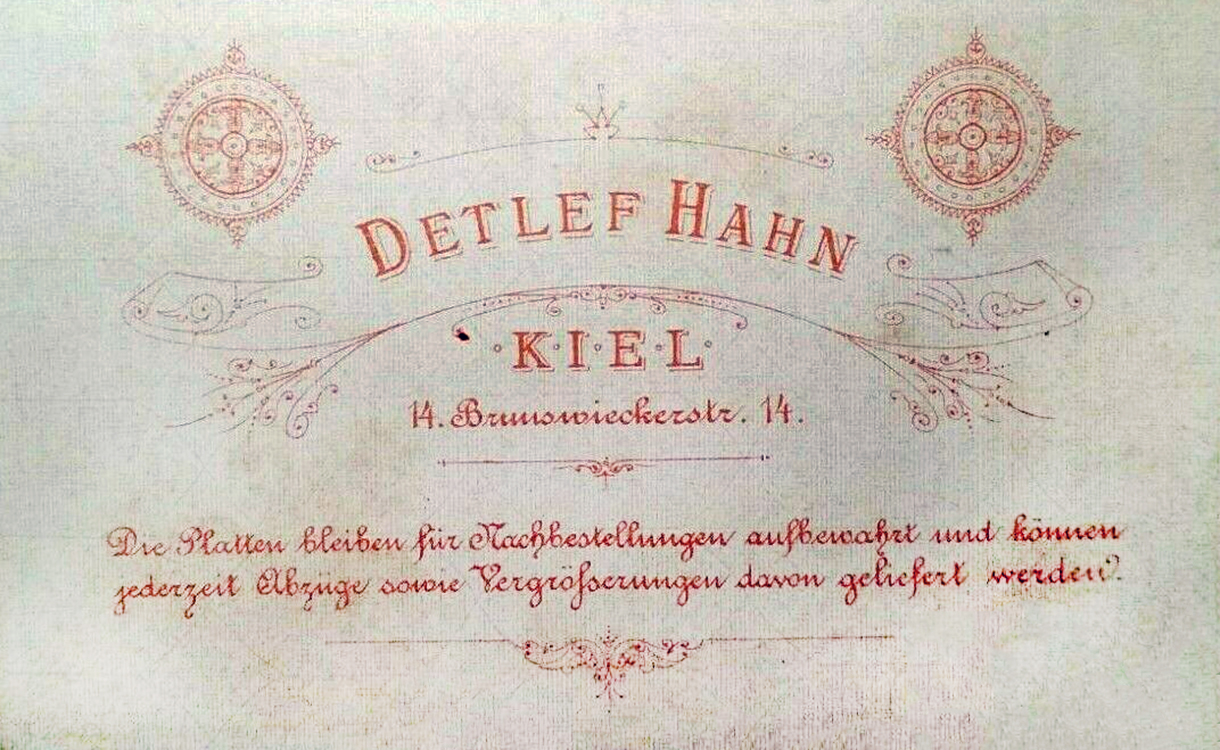 DETLEF HAHN
· K · I · E · L ·
14. Brunswieckerstr. 14.
Die Platten bleiben für Nachbestellungen aufbewahrt und können
jederzeit Abzüge sowie Vergröſserungen davon geliefert werden.